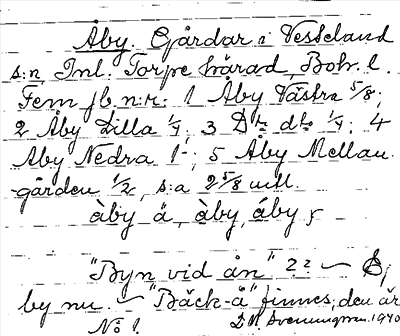 Åby. Gårdar i Vesseland
s:n, Inl. Torpe härad, Boh. l.
Fem jb. n:r: 1 Åby Västra 5/8;
2 Åby Lilla 1/4; 3 D:o d:o 1/4; 4
Åby Nedra 1; 5 Åby Mellan-
gården 1/2, s:a 2 5/8 mtl.
àby ä, àby, áby
"Byn vid ån" ??
by nu. "Bäck-å" finnes, den är
No 1. 1940